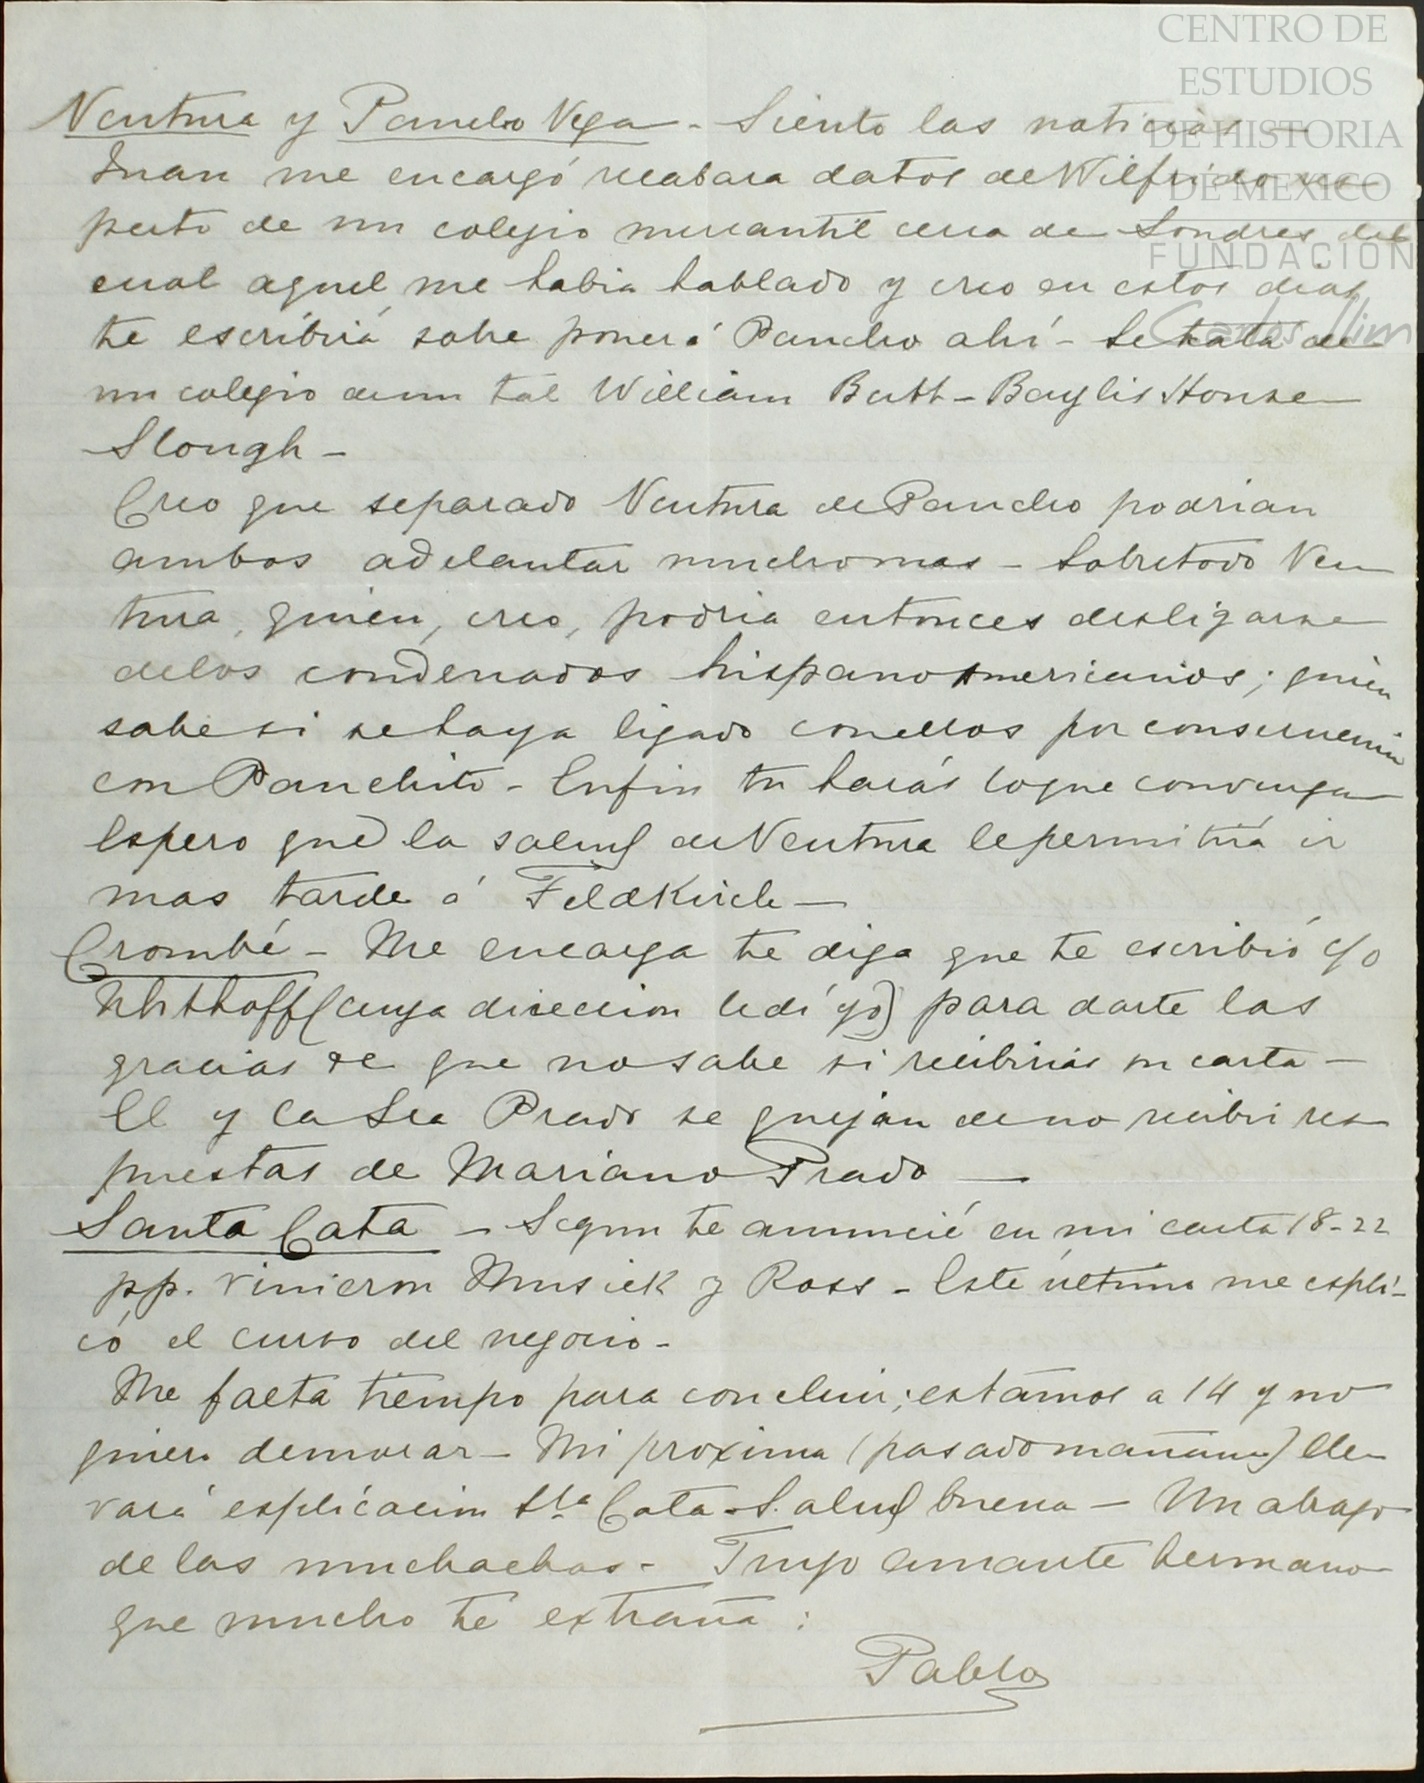 CENTRO DE
ESTUDIOS
DE HISTORIA
DE MEXICO
FUNDACIÓN
Carlos Slim
Ventura y Pancho Vega - Siento las noticias -
Juan me encargó recabara datos de Wilfrido res
pecto de un colegio mercantil cerca de Londres del
cual aquel me habia hablado y creo en estos dias
te escribirá sobre poner á Pancho ahí - Se trata de
un colegio de un tal William Butt - Baylis House
Slough -
Creo que separado Ventura de Pancho podrian
ambos adelantar mucho mas - Sobretodo Ven
tura, quien, creo, podria entonces desligarse
de los condenados hispano americanos; quien
sabe si se haya ligado con ellos por consecuencia
con Panchito - Enfin tu harás loque convenga
Espero que la salud de Ventura le permitirá ir
mas tarde á Feldkirch -
Crombé - Me encarga te diga que te escribió c/o
Uhthoff (cuya direccion le dí yo) para darte las
gracias que no sabe si recibirias su carta -
El y la Sra Prado se quejan de no recibir res
puestas de Mariano Prado -
Santa Cata - Segun te anuncié en mi carta 18-22
pp. vinieron Musick y Ross - Este último me espli-
có el curso del negocio -
Me falta tiempo para concluir; estamos a 14 y no
quiero demorar - Mi proxima (pasado mañana) lle-
vará esplicacion Sta Cata - Salud buena - Un abrazo
de las muchachas - Tuyo amante hermano
que mucho te extraña :
Pablo